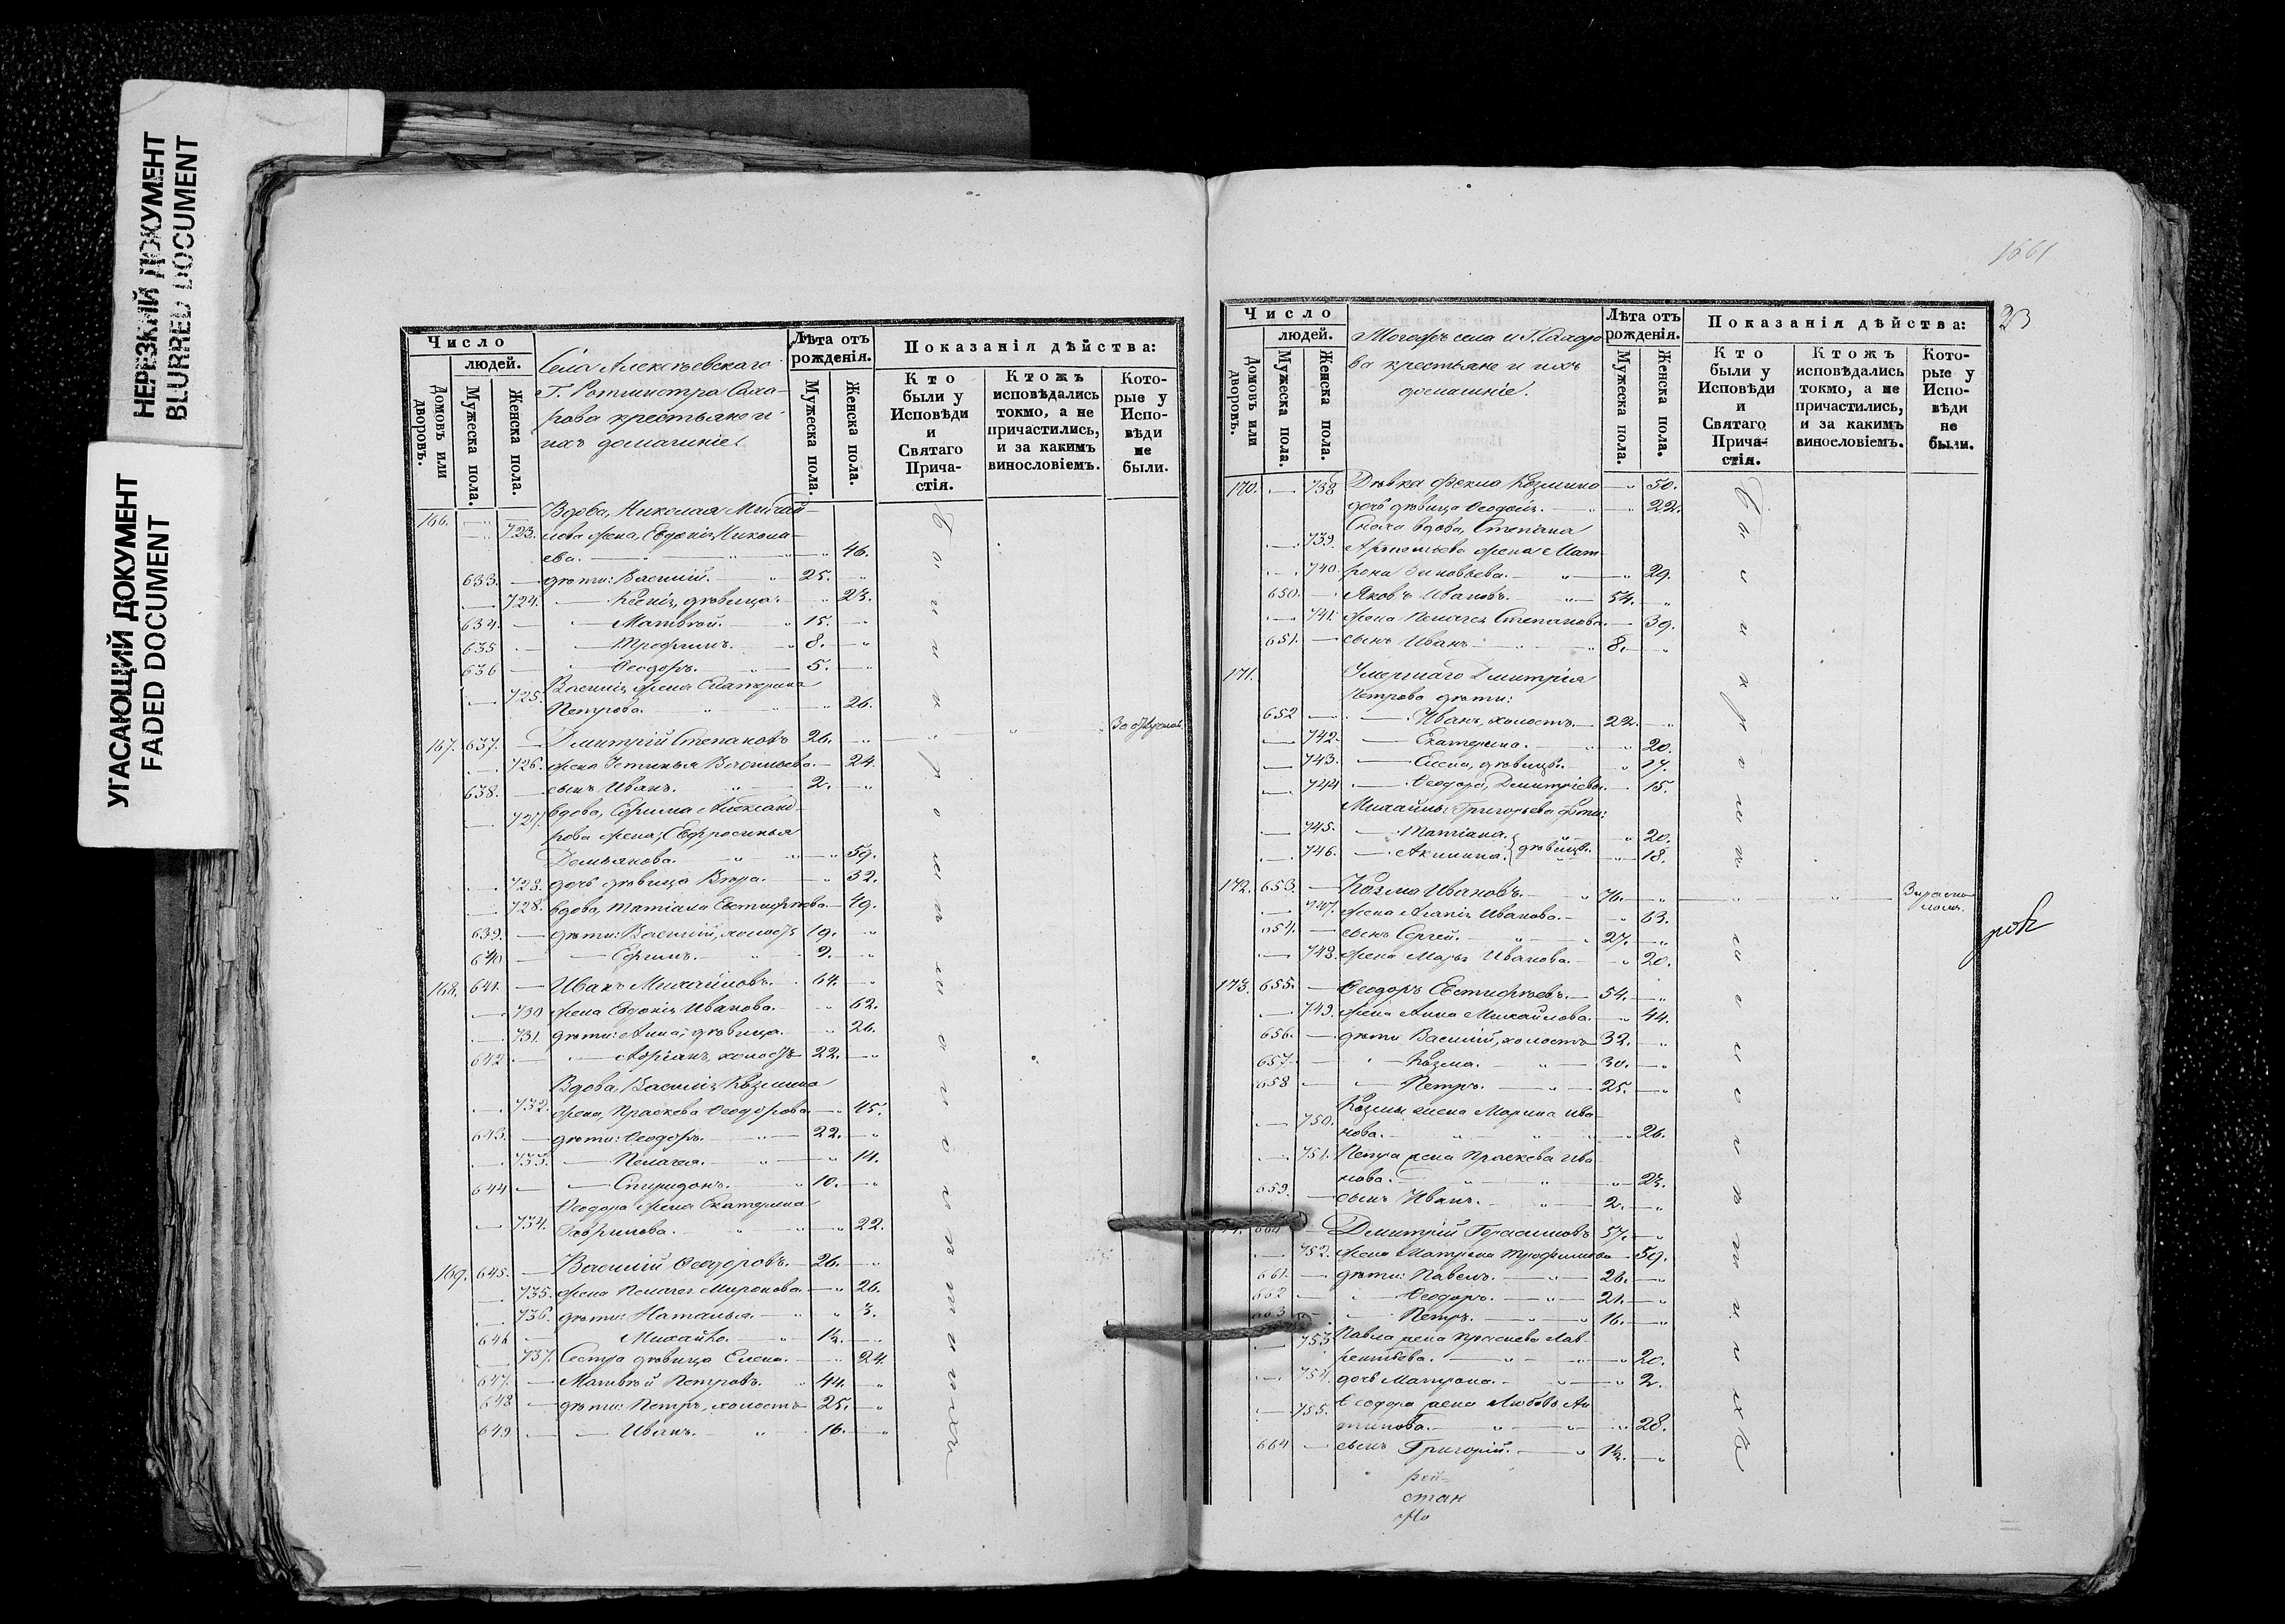 НЕРЕЗКИЙ ДОКУМЕНТ
BLURRED DOCUMENT
УГАСАЮЩИЙ ДОКУМЕНТ
FADED DOCUMENT
Число
людей.
Домовъ или дворовъ.
Мужеска пола.
Женска пола.
Села Алексѣевскаго
Г. Ротмистра Саха-
рова крестьяне и
ихъ домашніе.
Лѣта отъ рожденія.
Мужеска пола.
Женска пола.
Показанія дѣйства:
Кто были у Исповѣди и Святаго Прича-стія.
Ктожъ исповѣдались токмо, а не причастились, и за какимъ винословіемъ.
Кото-рые у Испо-вѣди не были.
166. Вдова, Николая Михай-
723. лова жена, Евдокія Никола-
ева. 46.
633. дѣти: Василій. 25.
724. Ксенія, дѣвица. 23.
634. Матвѣй. 15.
635 Трофимъ. 8.
636 Ѳеодоръ. 5.
Василія жена Екатерина
725. Петрова. 26.
167. 637. Дмитрій Степановъ 26.
726. жена Устинья Васильева. 24.
638. сынъ Иванъ. 2.
727. вдова, Ефима Александ-
рова жена, Евфросинья
Демьянова. 59.
728. дочь дѣвица Вѣра. 32.
728. вдова, Татіана Евстифѣева 49.
639. дѣти: Василій, холостъ 19.
640 Ефимъ. 9.
168. 641. Иванъ Михайловъ. 64.
730 жена Евдокія Иванова. 62.
731. дѣти: Анна, дѣвица. 26.
642 холостъ 22.
Вдова, Василія Козмина
732. жена, Праскева Ѳеодорова. 45.
643. дѣти: Ѳеодоръ. 22.
733. Пелагея. 14.
644 Спиридонъ. 10.
Ѳеодора жена Екатерина
734. Гаврилова. 22.
169. 645. Василій Ѳеодоровъ. 26.
735. жена Пелагея Миронова 26.
736. дѣти: Наталья. 3.
646 Михайло. 1½.
737. Сестра дѣвица Елена. 24.
647. Матвѣй Петровъ. 44.
648 дѣти: Петръ, холостъ 25.
649 Иванъ. 16.
1661
23
Число
людей.
Домовъ или дворовъ.
Мужеска пола.
Женска пола.
Тогожъ села и Г. Сахаро
ва крестьяне и ихъ
домашніе.
Лѣта отъ рожденія.
Мужеска пола.
Женска пола.
Показанія дѣйства:
Кто были у Исповѣди и Святаго Прича-стія.
Ктожъ исповѣдались токмо, а не причастились, и за какимъ винословіемъ.
Кото-рые у Испо-вѣди не были.
170. 738 Дѣвка Ѳекла Козмина 50.
дочь дѣвица 22.
739. вдова, Степана
жена Мат-
740. рона Зиновьева. 29.
650. Яковъ Ивановъ. 54.
741. жена Пелагея Степанова. 39.
651. сынъ Иванъ 8.
171. Умершаго Дмитрія
Петрова дѣти:
652 Иванъ, холостъ 22.
742. Екатерина. 20.
743. Елена, дѣвицы. 17.
744 Ѳеодора, Дмитріевы. 15.
Михайлы Григорьева дочи:
745. Татіана. 20.
746. Акилина. дѣвицы. 18.
172. 653. Козма Ивановъ. 76.
747. жена Агапія Иванова. 63.
654. сынъ Сергей. 27.
748. жена Марья Иванова. 20.
173. 655. Ѳеодоръ Евстифѣевъ. 54.
749. жена Анна Михайлова. 44.
656. дѣти Василій, холостъ 32.
657. Козма. 30.
658 Петръ. 25.
Козмы жена Марина Ива
750. нова. 26.
751. Петра жена Праскева Ива
нова. 23.
659. сынъ Иванъ. 2.
Дмитрій Герасимовъ 57.
752. жена Матрена Трофимова 59.
661. дѣти: Павелъ. 26.
662 Ѳеодоръ. 21.
663 Петръ. 16.
753 Павла жена Праскева Лав-
рентьева. 20.
754. дочь Матрона. 2.
755. Ѳеодора жена Любовь Ан
типова. 28.
664 сынъ Григорій. 1½.